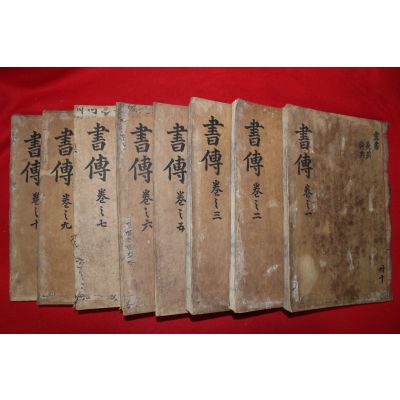 書傳 卷之一
共十
書傳 卷之二
書傳 卷之三
書傳 卷之五
書傳 卷之六
書傳 卷之七
書傳 卷之九
書傳 卷之十